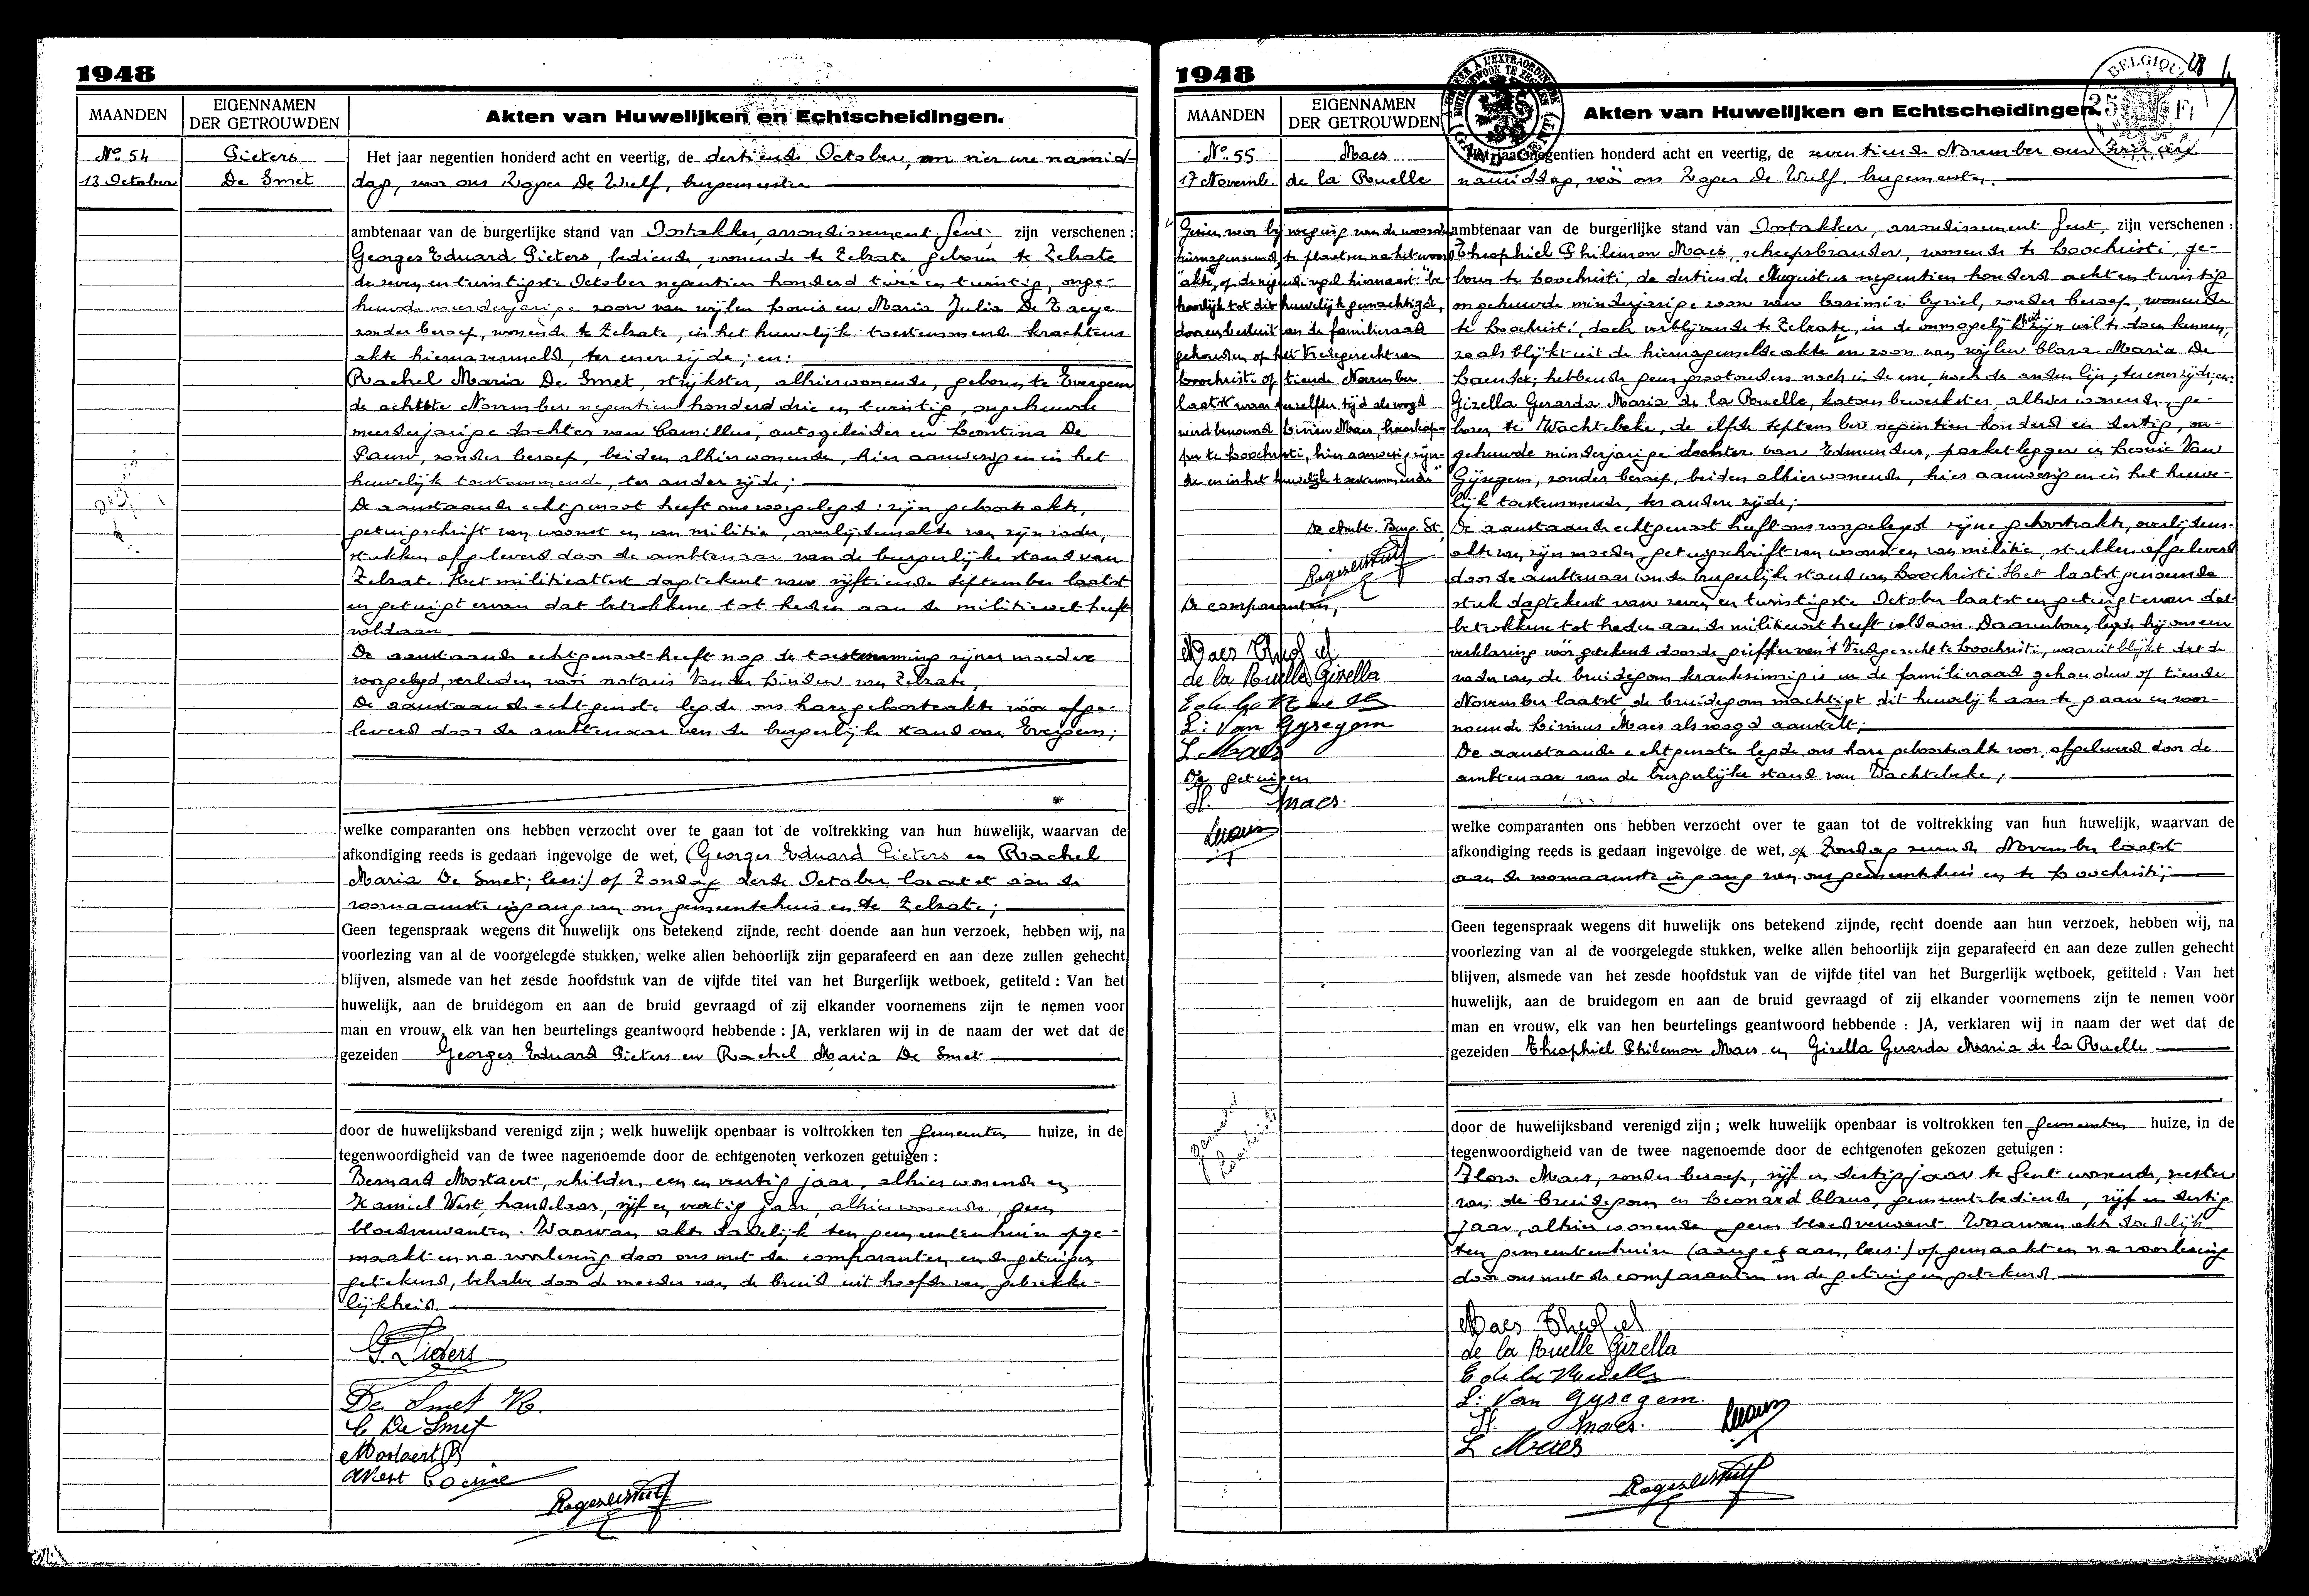 1948
MAANDEN
EIGENNAMEN
DER GETROUWDEN
Akten van Huwelijken en Echtscheidingen.
No 54
13 October
Pieters
De Smet
Het jaar negentien honderd acht en veertig, de dertiende October, om vier ure namid-
dag, voor ons Roger De Wulf, burgemeester
ambtenaar van de burgerlijke stand van Oostakker, arrondissement Gent, zijn verschenen :
Georges Eduard Pieters, bediende, wonende te Zelzate geboren te Zelzate
de zeven en twintigste October negentien honderd twee en twintig, onge-
huwde meerderjarige zoon van wijlen Louis en Maria Julia De Zaeye
zonder beroep, wonende te Zelzate, in het huwelijk toestemmende krachtens
akte hiernavermeld, ter ener zijde; en:
Rachel Maria De Smet, strijkster, alhier wonende, geboren te Evergem
de achtste November negentien honderd drie en twintig, ongehuwde
meerderjarige dochter van Camillus, autogeleider en Leontina De
Pauw, zonder beroep, beiden alhier wonende, hier aanwezig en in het
huwelijk toestemmende, ter ander zijde;
De aanstaande echtgenoot heeft ons voorgelegd: zijn geboorteakte,
getuigschrift van woonst en van militie, overlijdensakte van zijn vader,
stukken afgeleverd door de ambtenaar van de burgerlijke stand van
Zelzate. Het militieattest dagtekent van vijftiende September laatst
en getuigt ervan dat betrokkene tot heden aan de militiewet heeft
voldaan.
De aanstaande echtgenoot heeft nog de toestemming zijner moeder
voorgelegd, verleden vóór notaris Van der Linden van Zelzate,
De aanstaande echtgenote legde ons hare geboorteakte vóór afge-
leverd door de ambtenaar van de burgerlijke stand van Evergem;
welke comparanten ons hebben verzocht over te gaan tot de voltrekking van hun huwelijk, waarvan de
afkondiging reeds is gedaan ingevolge de wet, (Georges Eduard Pieters en Rachel
Maria De Smet; lees:) op Zondag derde October laatst aan de
voornaamste ingang van ons gemeentehuis en te Zelzate;
Geen tegenspraak wegens dit huwelijk ons betekend zijnde, recht doende aan hun verzoek, hebben wij, na
voorlezing van al de voorgelegde stukken, welke allen behoorlijk zijn geparafeerd en aan deze zullen gehecht
blijven, alsmede van het zesde hoofdstuk van de vijfde titel van het Burgerlijk wetboek, getiteld : Van het
huwelijk, aan de bruidegom en aan de bruid gevraagd of zij elkander voornemens zijn te nemen voor
man en vrouw, elk van hen beurtelings geantwoord hebbende : JA, verklaren wij in de naam der wet dat de
gezeiden Georges Eduard Pieters en Rachel Maria De Smet
door de huwelijksband verenigd zijn ; welk huwelijk openbaar is voltrokken ten gemeenten huize, in de
tegenwoordigheid van de twee nagenoemde door de echtgenoten verkozen getuigen :
Bernard Mostaert, schilder, een en veertig jaar, alhier wonende en
Kamiel West, handelaar, vijf en veertig jaar, alhier wonende, geen
bloedverwanten. Waarvan akte dadelijk ten gemeentenhuize opge-
maakt en na voorlezing door ons met de comparanten en de getuigen
getekend, behalve door de moeder van de bruid uit hoofde van gebrekke-
lijkheid.
G. Pieters
De Smet R.
C De Smet
Mostaert B
Roger De Wulf
1948
MAANDEN
EIGENNAMEN
DER GETROUWDEN
Akten van Huwelijken en Echtscheidingen.
BELGIQUE
No 55
17 Novemb.
Maes
de la Ruelle
Het jaar negentien honderd acht en veertig, de zeventiende November om vier ure
namiddag, vóór ons Roger De Wulf, burgemeester.
Gezien voor bijvoeging van de woorden
hiernagenoemd, te plaatsen na het woord
"akte, of de vijfde regel hiernaast: "be-
hoorlijk tot dit huwelijk gemachtigd,
door een besluit van de familieraad
gehouden op het Vredegerecht van
Loochristi op tiende November
laatst waar terzelfder tijd als voogd
werd benoemd Livien Maes, hovenier
te Loochristi, hier aanwezig zijn-
de en in het huwelijk toestemmende"
De Ambt. Burg. St.
Roger De Wulf
De comparanten,
Maes Theofiel
de la Ruelle Gizella
E de la Ruelle
L: Van Gysegem
L Maes
De getuigen
Maes.
ambtenaar van de burgerlijke stand van Oostakker, arrondissement Gent, zijn verschenen :
Theophiel Philemon Maes, scheepsbrander, wonende te Loochristi, ge-
boren te Loochristi, de dertiende Augustus negentien honderd acht en twintig
ongehuwde minderjarige zoon van Casimir Cyriel, zonder beroep, wonende
te Loochristi, doch verblijvende te Zelzate, in de onmogelijkheid zijn wil te doen kennen,
zoals blijkt uit de hiernagemelde akte en zoon van wijlen Clara Maria De
; hebbende geen grootouders noch in de ene, noch de andere lijn, ter ener zijde; en:
Gizella Gerarda Maria de la Ruelle, katoenbewerkster, alhier wonende, ge-
boren te Wachtebeke, de elfde September negentien honderd en dertig, on-
gehuwde minderjarige dochter van Edmundus, parketlegger en Leonie Van
Gijsegem, zonder beroep, beiden alhier wonende, hier aanwezig en in het huwe-
lijk toestemmende, ter andere zijde;
De aanstaande echtgenoot heeft ons voorgelegd zijne geboorteakte, overlijdens-
akte van zijn moeder, getuigschrift van woonst en van militie, stukken afgeleverd
door de ambtenaar van de burgerlijke stand van Loochristi. Het laatstgenoemde
stuk dagtekent van zeven en twintigste October laatst en getuigt ervan dat
betrokkene tot heden aan de militiewet heeft voldaan. Daarenboven legde hij ons een
verklaring vóór getekend door de griffier van 't Vredegerecht te Loochristi, waaruit blijkt dat de
vader van de bruidegom krankzinnig is en de familieraad gehouden op tiende
November laatst, de bruidegom machtigt dit huwelijk aan te gaan en voor-
noemde Livinus Maes als voogd aanstelt;
De aanstaande echtgenote legde ons hare geboorteakte voor, afgeleverd door de
ambtenaar van de burgerlijke stand van Wachtebeke;
welke comparanten ons hebben verzocht over te gaan tot de voltrekking van hun huwelijk, waarvan de
afkondiging reeds is gedaan ingevolge de wet, op Zondag zevende November laatst
aan de voornaamste ingang van ons gemeentehuis en te Loochristi;
Geen tegenspraak wegens dit huwelijk ons betekend zijnde, recht doende aan hun verzoek, hebben wij, na
voorlezing van al de voorgelegde stukken, welke allen behoorlijk zijn geparafeerd en aan deze zullen gehecht
blijven, alsmede van het zesde hoofdstuk van de vijfde titel van het Burgerlijk wetboek, getiteld : Van het
huwelijk, aan de bruidegom en aan de bruid gevraagd of zij elkander voornemens zijn te nemen voor
man en vrouw, elk van hen beurtelings geantwoord hebbende : JA, verklaren wij in naam der wet dat de
gezeiden Theophiel Philemon Maes en Gizella Gerarda Maria de la Ruelle
door de huwelijksband verenigd zijn ; welk huwelijk openbaar is voltrokken ten gemeenten huize, in de
tegenwoordigheid van de twee nagenoemde door de echtgenoten gekozen getuigen :
Flora Maes, zonder beroep, vijf en dertig jaar te Gent wonende, zuster
van de bruidegom en Leonard Claus, gemeentebediende, vijf en dertig
jaar, alhier wonende, geen bloedverwant. Waarvan akte dadelijk
ten gemeentenhuize (aangegaan, lees:) opgemaakt en na voorlezing
door ons met de comparanten en de getuigen getekend.
Maes Theofiel
de la Ruelle Gizella
E de la Ruelle
L: Van Gysegem.
Maes.
L Maes
Roger De Wulf